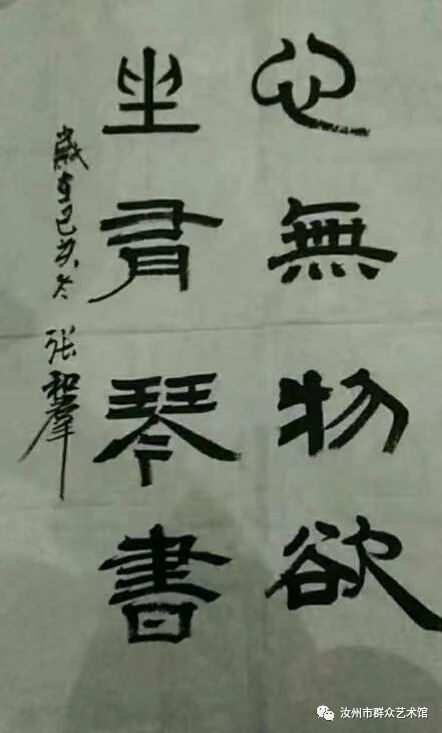 心無物欲
坐有琴書
歲在己亥冬 张和群
汝州市群众艺术馆